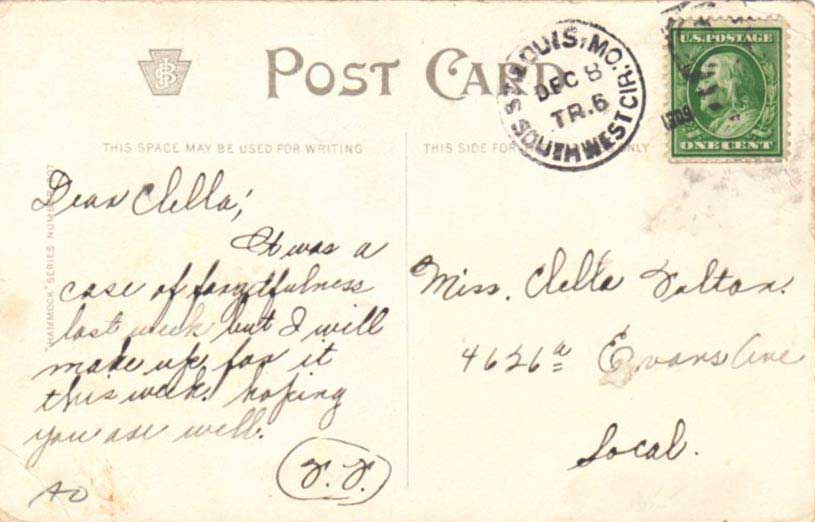 POST CARD
ST. LOUIS, MO.
DEC 8
TR. 6
SOUTHWEST CIR.
1909
U.S. POSTAGE
ONE CENT
THIS SPACE MAY BE USED FOR WRITING
THIS SIDE FOR ONLY
"HAMMOCK" SERIES NUMBER
Dear Clella;
It was a
case of forgetfulness
last week but I will
make up for it
this week. hoping
you are well.
AO
Miss. Clella
4626a Evans Ave
Local.